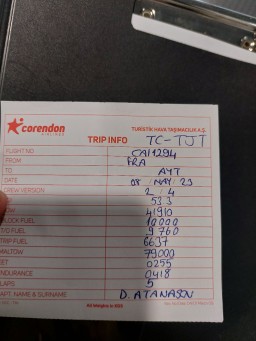 corendon
AIRLINES
TURİSTİK HAVA TAŞIMACILIK A.Ş.
TRIP INFO TC-TJT
FLIGHT NO CAI1294
FROM FRA
TO AYT
DATE 08 MAY 23
CREW VERSION 2 / 4
533
41910
BLOCK FUEL 10000
T/O FUEL 9760
TRIP FUEL 6637
MALTOW 79000
EET 0255
ENDURANCE 0418
FLAPS 5
CAPT. NAME & SURNAME D. ATANASOV
All Weights in KGS